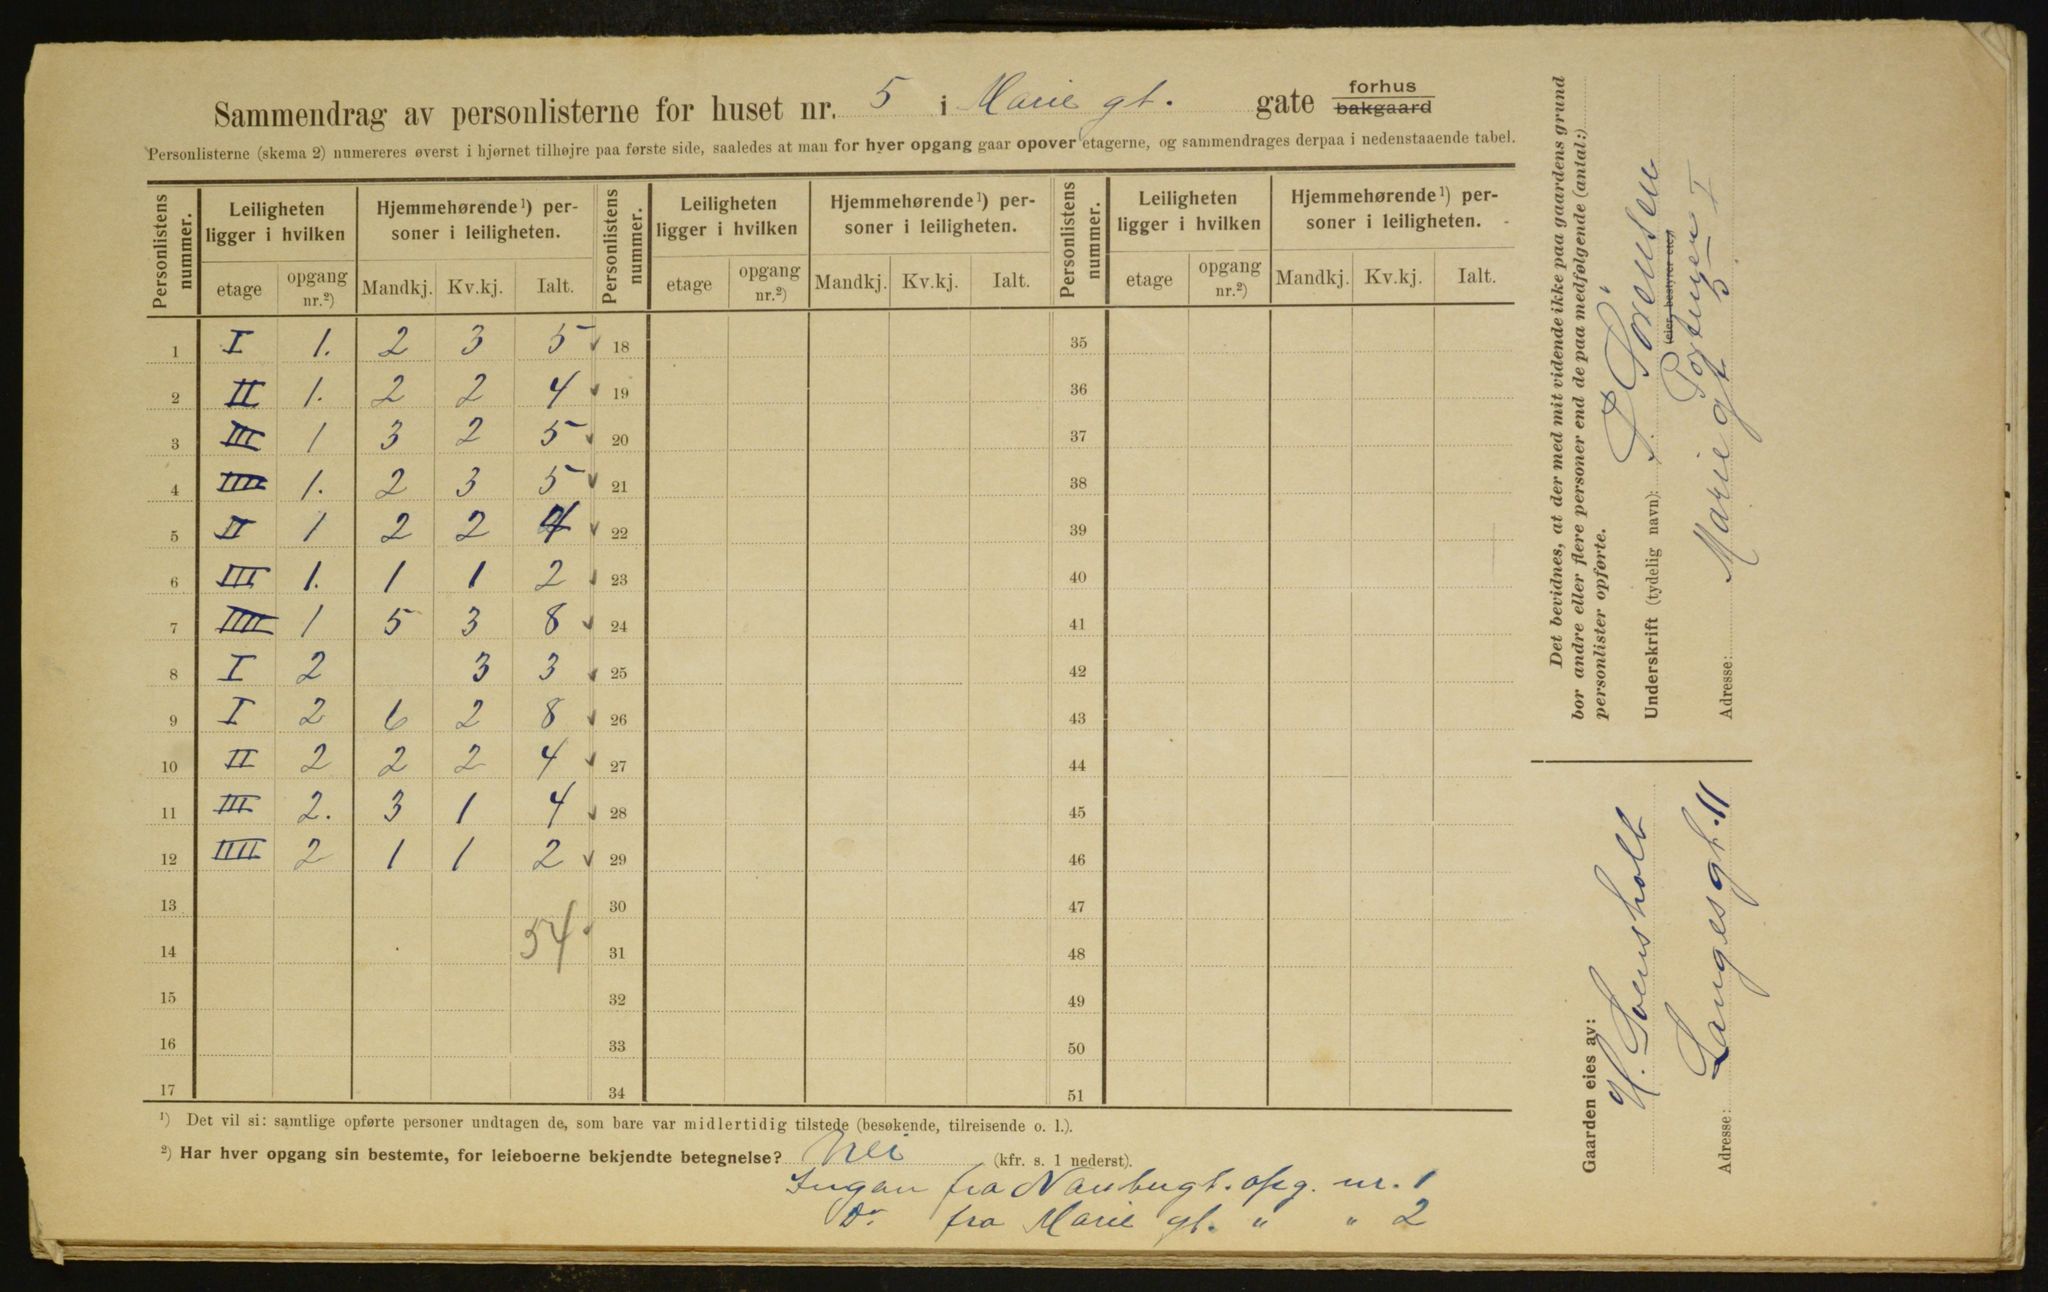 Sammendrag av personlisterne for huset nr. 5 i Marie gt. gate forhus bakgaard
Personlisterne (skema 2) numereres øverst i hjørnet tilhøjre paa første side, saaledes at man for hver opgang gaar opover etagerne, og sammendrages derpaa i nedenstaaende tabel.
Personlistens nummer. Leiligheten ligger i hvilken Hjemmehørende¹) personer i leiligheten. Personlistens nummer. Leiligheten ligger i hvilken Hjemmehørende¹) personer i leiligheten. Personlistens nummer. Leiligheten ligger i hvilken Hjemmehørende¹) personer i leiligheten.
etage opgang nr.²) Mandkj. Kv.kj. Ialt. etage opgang nr.²) Mandkj. Kv.kj. Ialt. etage opgang nr.²) Mandkj. Kv.kj. Ialt.
1 I 1. 2 3 5 18 35
2 II 1. 2 2 4 19 36
3 III 1 3 2 5 20 37
4 IIII 1. 2 3 5 21 38
5 II 1 2 2 4 22 39
6 III 1. 1 1 2 23 40
7 IIII 1 5 3 8 24 41
8 I 2 3 3 25 42
9 I 2 6 2 8 26 43
10 II 2 2 2 4 27 44
11 III 2. 3 1 4 28 45
12 IIII 2 1 1 2 29 46
13 30 47
14 54 31 48
15 32 49
16 33 50
17 34 51
¹) Det vil si: samtlige opførte personer undtagen de, som bare var midlertidig tilstede (besøkende, tilreisende o. l.).
²) Har hver opgang sin bestemte, for leieboerne bekjendte betegnelse? Nei (kfr. s. 1 nederst).
fra opg. nr. 1
Do fra Marie gt. " " 2
Det bevidnes, at der med mit vidende ikke paa gaardens grund
bor andre eller flere personer end de paa medfølgende (antal:)
personlister opførte.
Underskrift (tydelig navn): Sørensen
(eier, bestyrer etc.)
Adresse: Marie gt 5 I
Gaarden eies av:
H. Svensholt
Adresse: Langes gt. 11